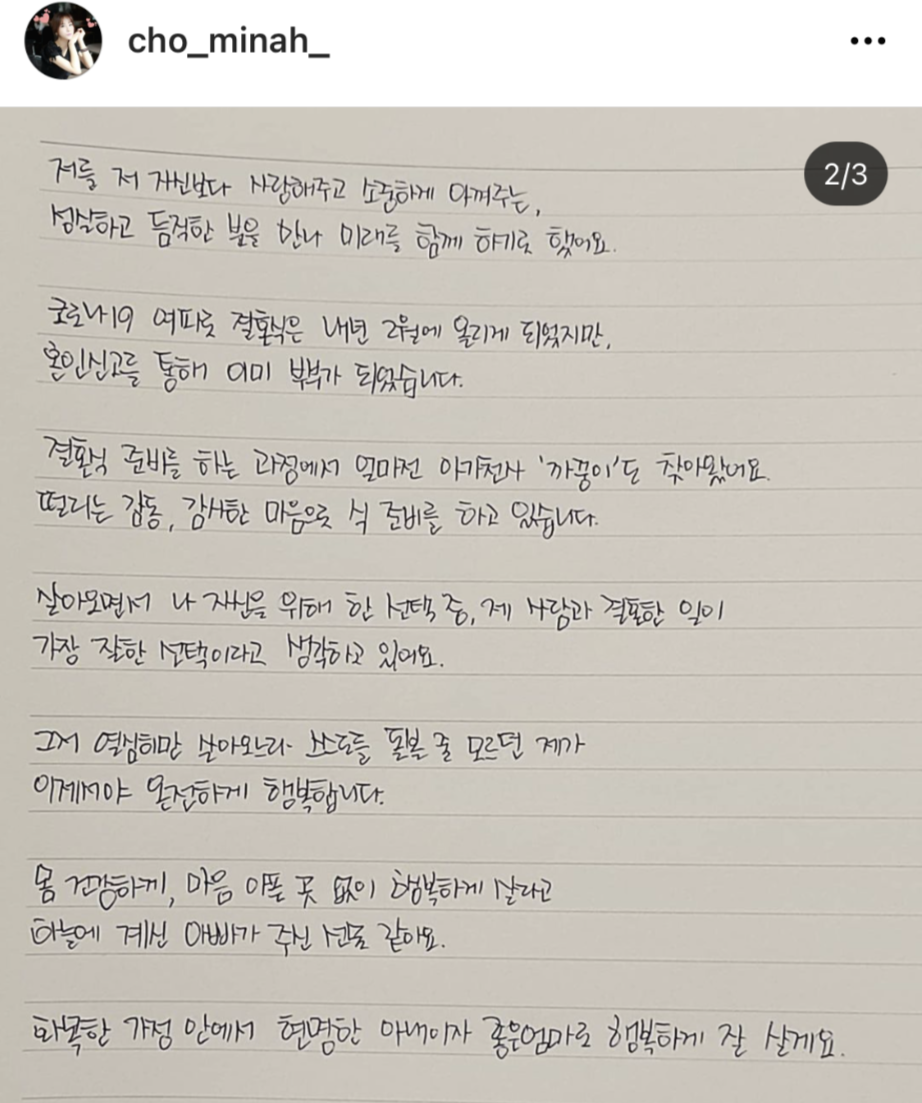 cho_minah_
2/3
저를 저 자신보다 사랑해주고 소중하게 아껴주는,
성실하고 듬직한 분을 만나 미래를 함께 하기로 했어요.
코로나19 여파로 결혼식은 내년 2월에 올리게 되었지만,
혼인신고를 통해 이미 부부가 되었습니다.
결혼식 준비를 하는 과정에서 얼마전 아가천사 '까꿍이'도 찾아왔어요.
떨리는 감동, 감사한 마음으로 식 준비를 하고 있습니다.
살아오면서 나 자신을 위해 한 선택 중, 제 사람과 결혼한 일이
가장 잘한 선택이라고 생각하고 있어요.
그저 열심히만 살아오느라 스스로를 돌볼 줄 모르던 제가
이제서야 온전하게 행복합니다.
몸 건강하게, 마음 아플 곳 없이 행복하게 살라고
하늘에 계신 아빠가 주신 선물 같아요.
화목한 가정 안에서 현명한 아내이자 좋은엄마로 행복하게 잘 살게요.